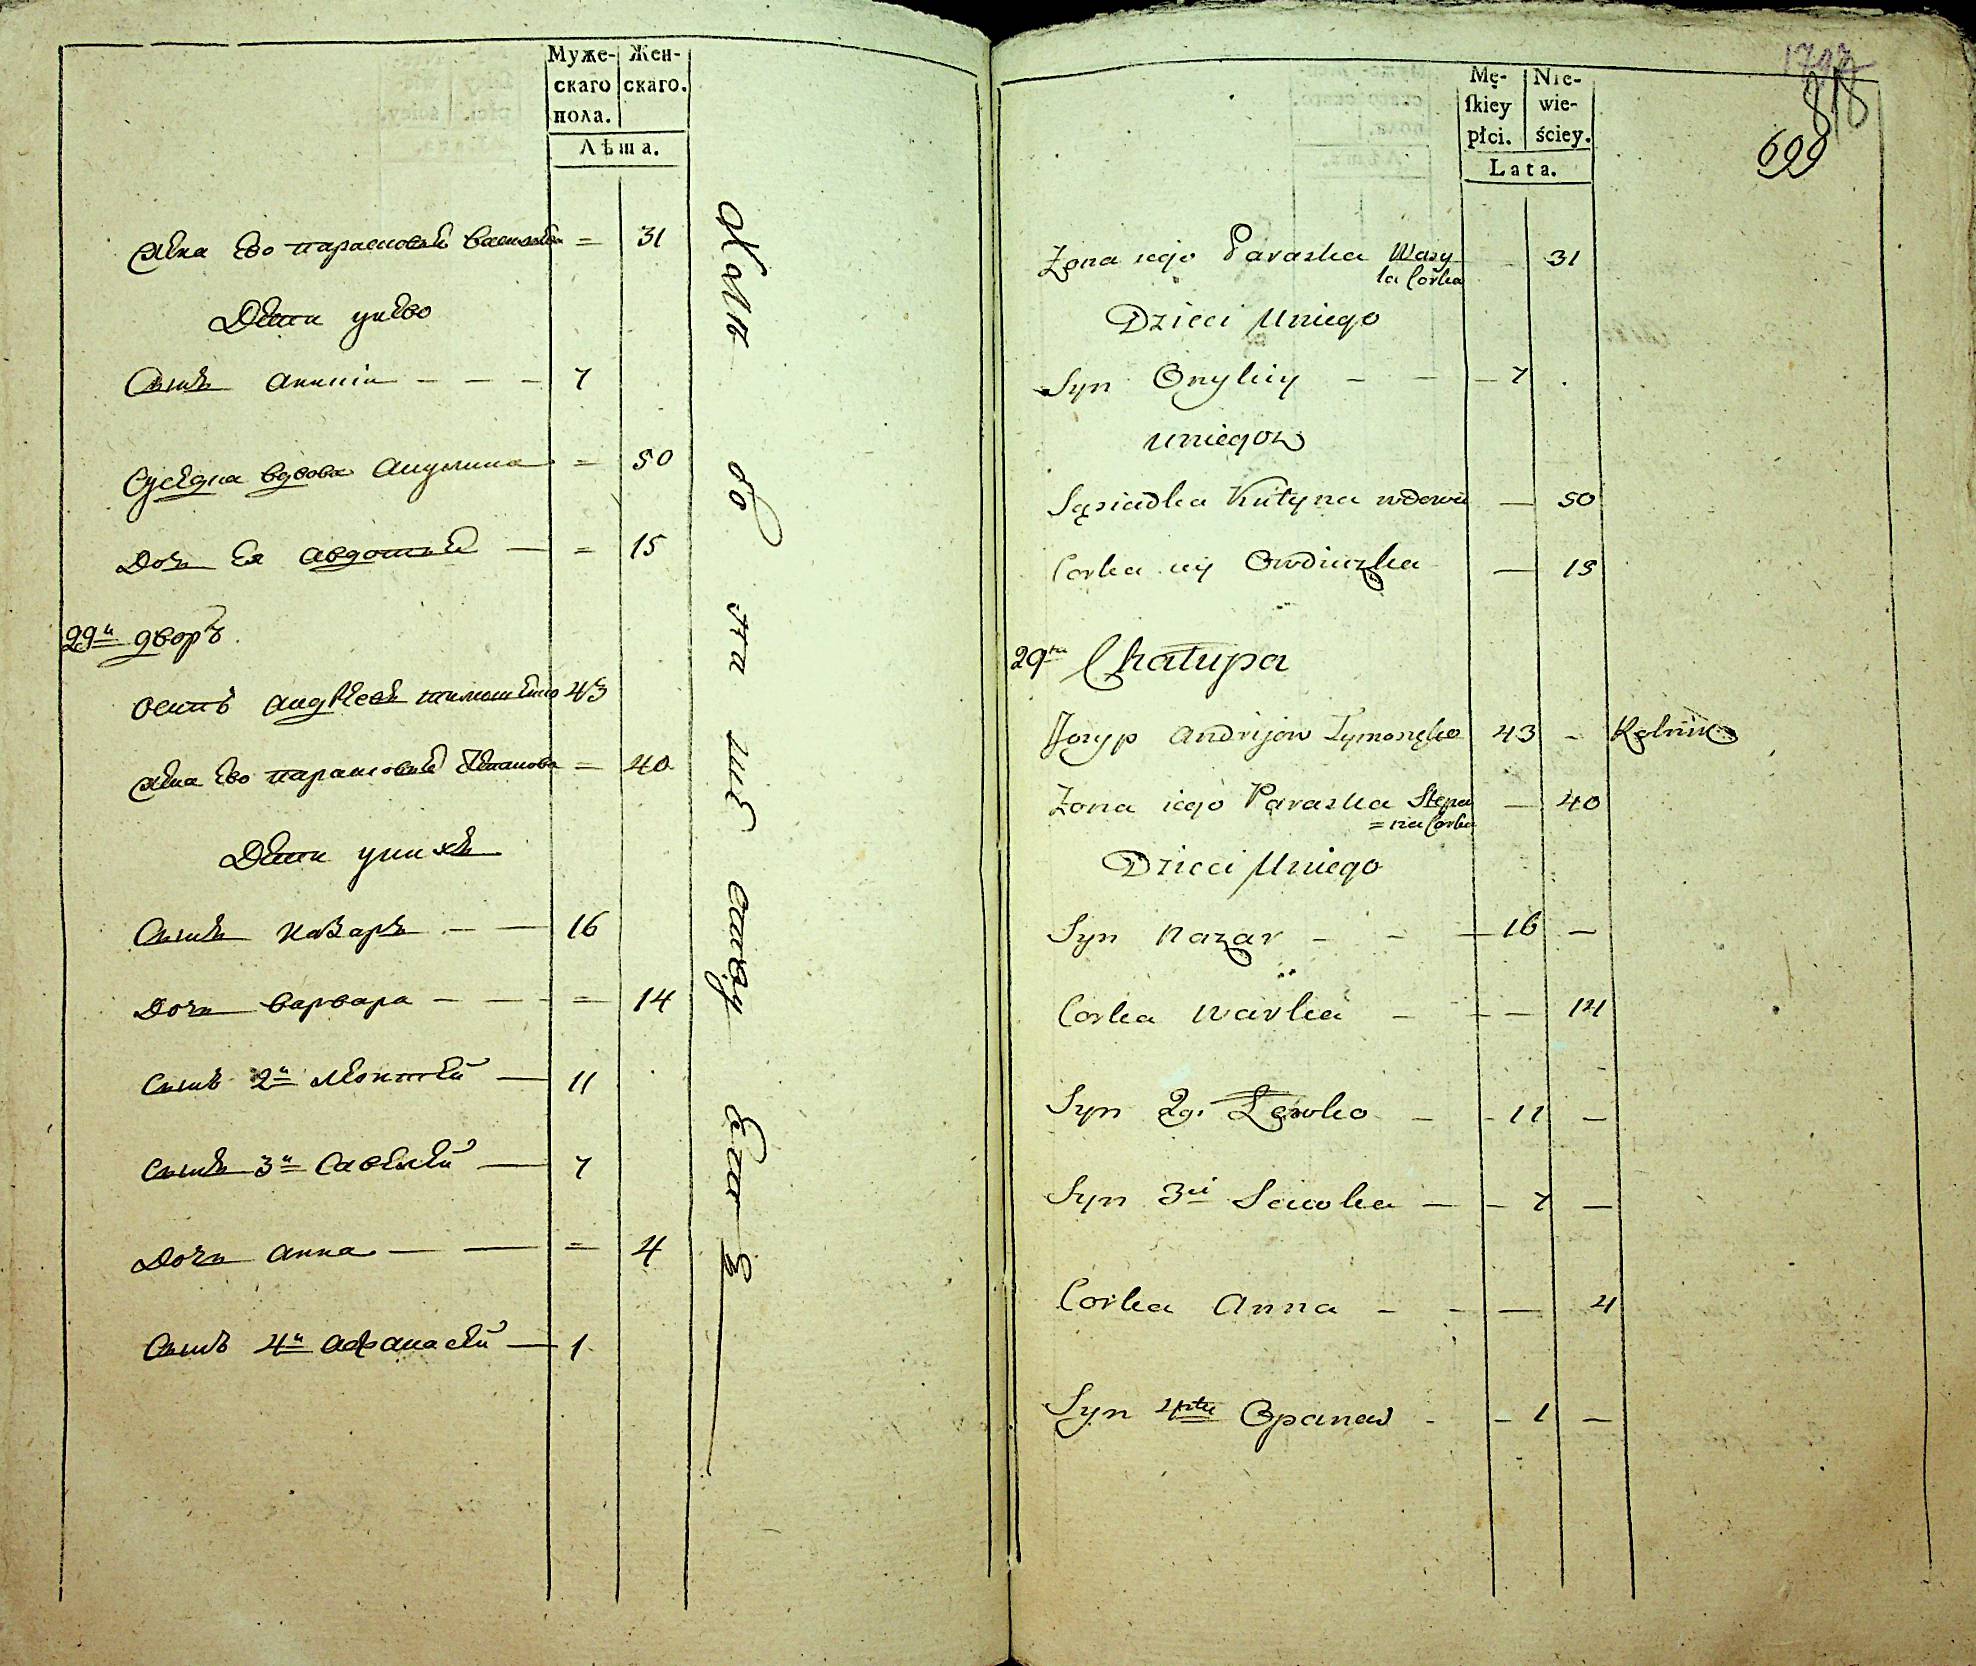 Муже-
скаго
пола.
Жен-
скаго.
Лѣта.
Жена Ево парасковей василева = 31
Дети унево
Сынъ Аникій — — — 7
Суседка вдова Акулина = 50
Дочь Ея Авдотей — = 15
29й дворъ
Осипъ Андреевъ тимошенко 43
Жена Ево парасковей Степанова = 40
Дети унихъ
Сынъ Назаръ — — 16
Дочь варвара — — — = 14
Сынъ 2й Леонтей — 11
Сынъ 3й Савелей — 7
Дочь Анна — — = 4
Сынъ 4й Афанасей — 1
Mę-
ſkiey
płci.
Nie-
wie-
ściey.
Lata.
818
699
Żona iego Paraska Wasy
la Corka — 31
Dzieci Uniego
Syn Onykiy — — — 7
Uniegoz
Sąsiadka Kulyna wdowa — 50
Corka iey Owdiuszka — 15
29ta Chałupa
Jozyp Andrijow Tymoszęko 43 — Rolnik
Zona iego Paraska Stepa
=na Corka — 40
Dzieci Uniego
Syn Nazar — — — 16 —
Corka Warka — — — 14
Syn 2gi Lewko — — 11 —
Syn 3ci Sawka — — 7 —
Corka Anna — — — 4
Syn 4rty Opanas — — 1 —